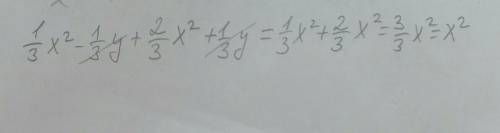 1/3 x² - 1/3 y + 2/3 x² + 1/3 y = 1/3 x² + 2/3 x² = 3/3 x² = x²